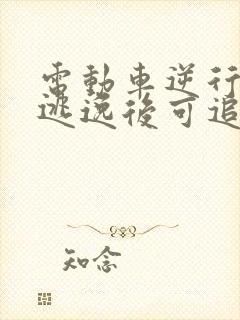 電動車逆行
逃逸後可追
知念